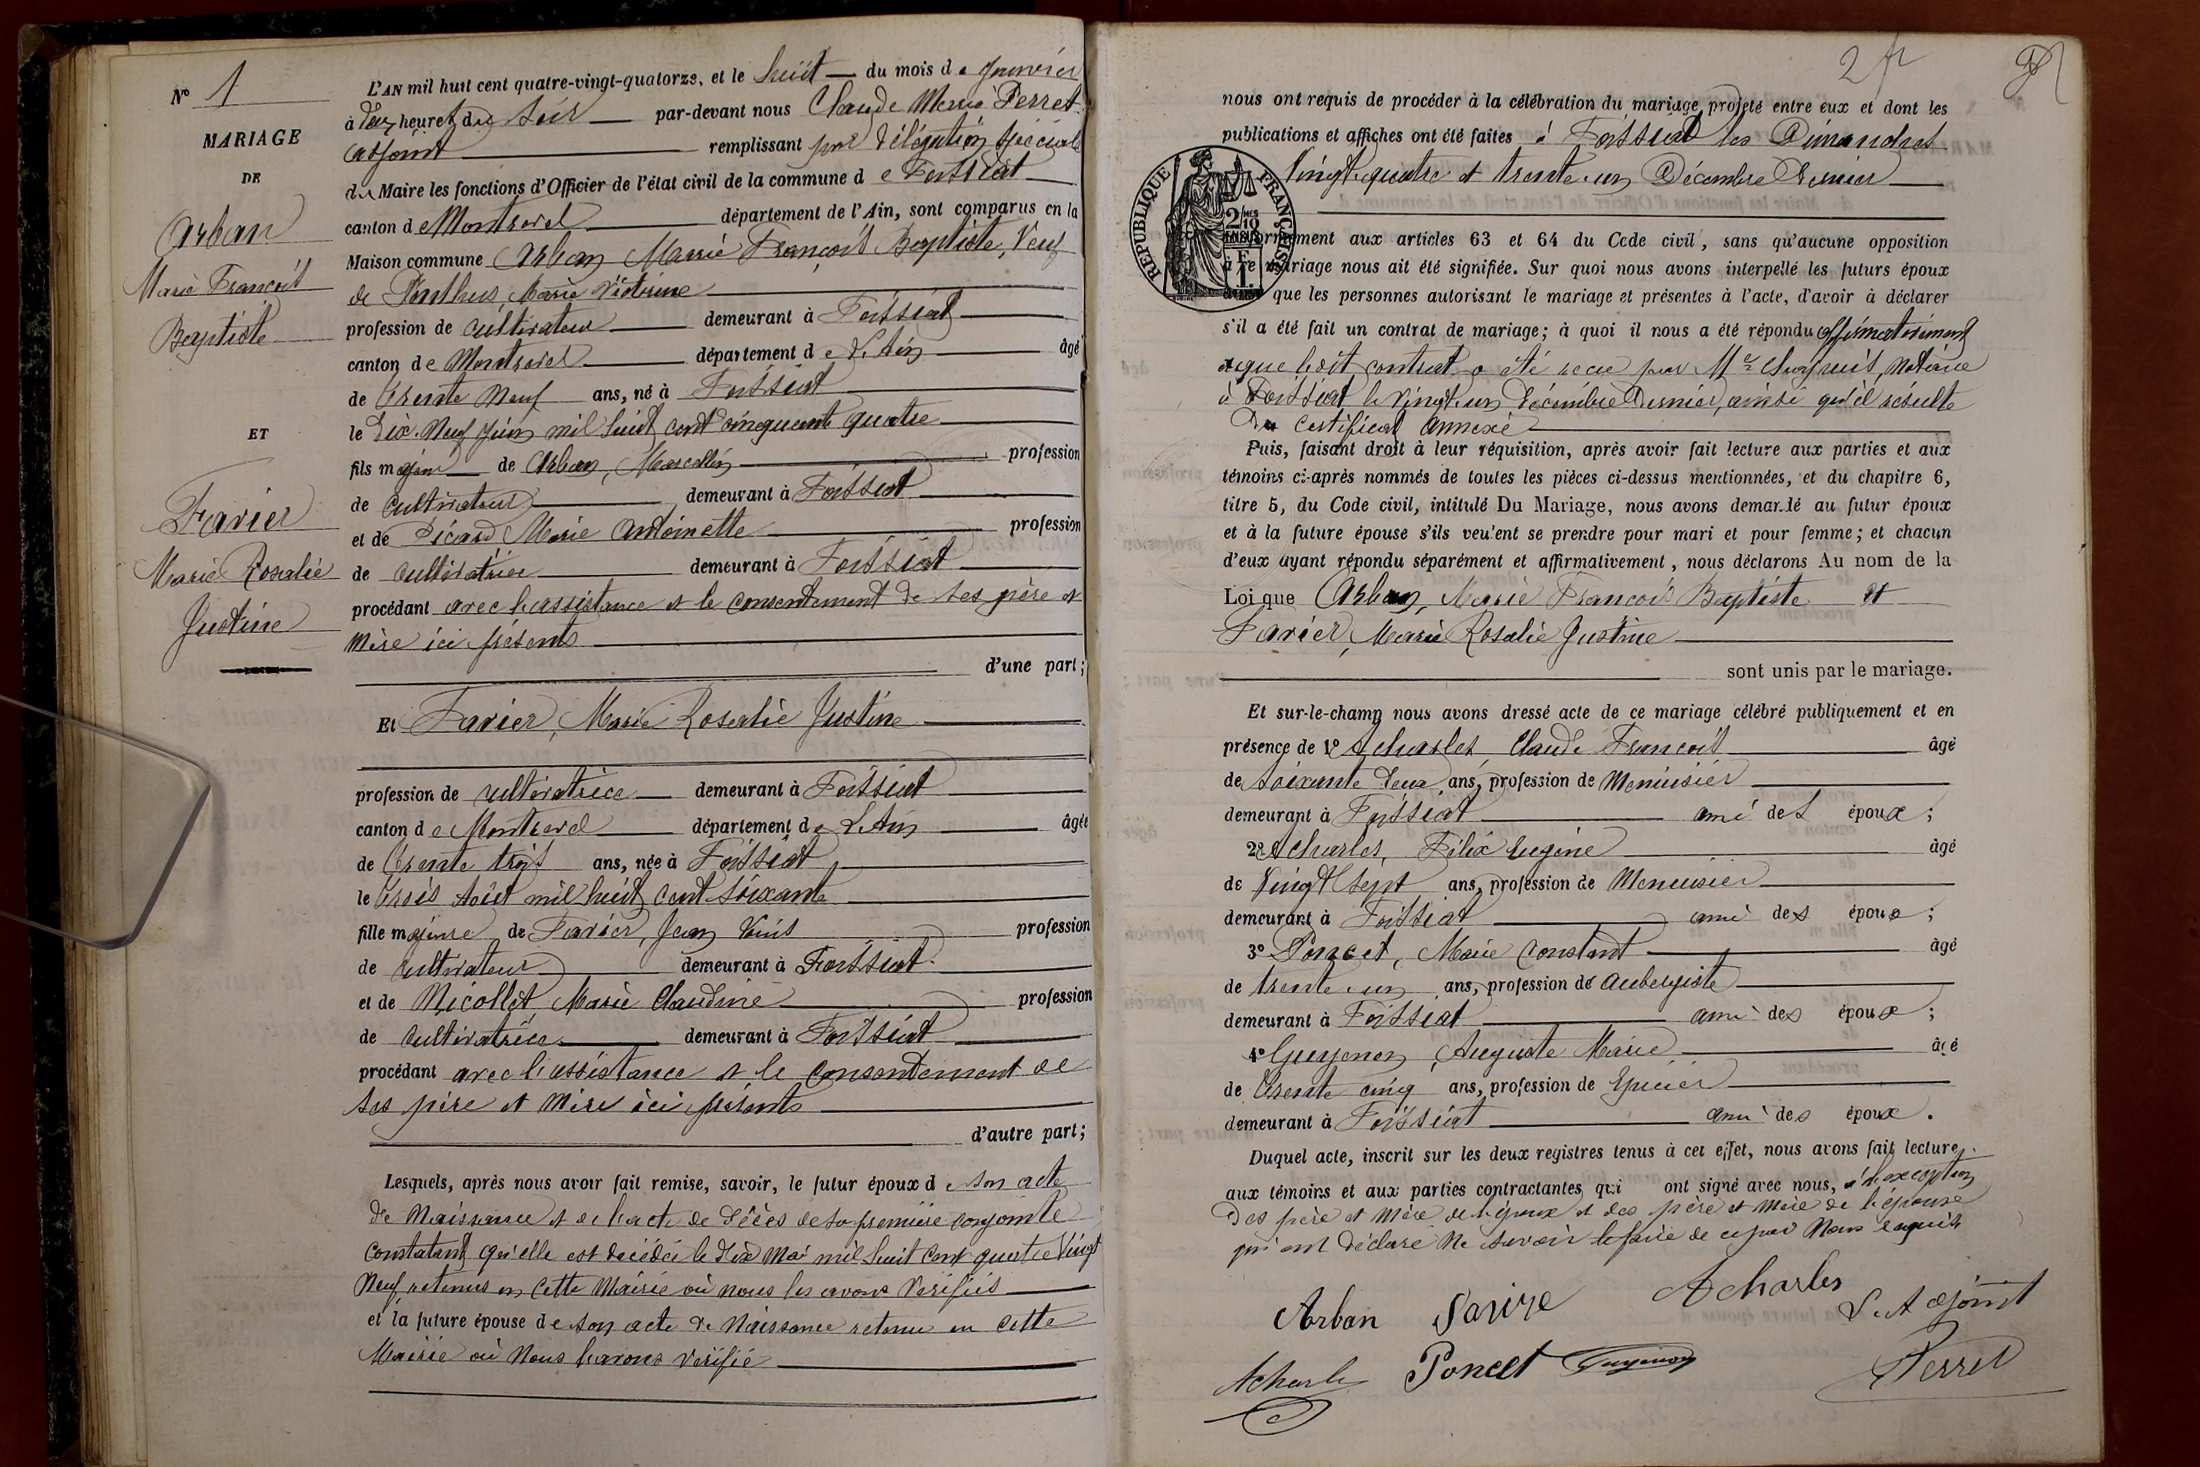 N° 1
MARIAGE
DE
Arban
Marie François
Baptiste
ET
Favier
Marie Rosalie
Justine
L'AN mil huit cent quatre-vingt-quatorze, et le huit du mois de Janvier
à deux heures du soir par-devant nous Claude Marie Perret
adjoint remplissant par délégation spéciale
du Maire les fonctions d'Officier de l'état civil de la commune de Foissiat
canton de Montrevel département de l'Ain, sont comparus en la
Maison commune Arban Marie François Baptiste, Veuf
de Ponthus, Marie Victorine
profession de cultivateur demeurant à Foissiat
canton de Montrevel département de L'Ain âgé
de trente neuf ans, né à Foissiat
le dix-neuf Juin mil huit cent cinquante quatre
fils majeur de Arban, Marcellin profession
de cultivateur demeurant à Foissiat
et de Picard Marie Antoinette profession
de cultivatrice demeurant à Foissiat
procédant avec l'assistance et le consentement de ses père et
mère ici présents
d'une part;
Et Favier, Marie Rosalie Justine
profession de cultivatrice demeurant à Foissiat
canton de Montrevel département de L'Ain âgée
de trente trois ans, née à Foissiat
le trois Août mil huit cent soixante
fille majeure de Favier, Jean Louis profession
de cultivateur demeurant à Foissiat
et de Nicollet, Marie Claudine profession
de cultivatrice demeurant à Foissiat
procédant avec l'assistance et le consentement de
ses père et mère ici présents
d'autre part;
Lesquels, après nous avoir fait remise, savoir, le futur époux de son acte
de Naissance et de l'acte de décès de sa première conjointe
constatant qu'elle est décédée le dix Mai mil huit cent quatre Vingt
Neuf retenus en cette Mairie où nous les avons Vérifiés
et la future épouse de son acte de Naissance retenu en cette
Mairie où Nous l'avons vérifié
2
nous ont requis de procéder à la célébration du mariage projeté entre eux et dont les
publications et affiches ont été faites à Foissiat les Dimanches
Vingt-quatre et trente-un Décembre dernier
RÉPUBLIQUE FRANÇAISE
2/10
EN SUS
conformément aux articles 63 et 64 du Code civil, sans qu'aucune opposition
à ce mariage nous ait été signifiée. Sur quoi nous avons interpellé les futurs époux
que les personnes autorisant le mariage et présentes à l'acte, d'avoir à déclarer
s'il a été fait un contrat de mariage; à quoi il nous a été répondu affirmativement
et que ledit contrat a été recu par Me notaire
à Foissiat le vingt-un Décembre Dernier, ainsi qu'il résulte
du certificat annexé
Puis, faisant droit à leur réquisition, après avoir fait lecture aux parties et aux
témoins ci-après nommés de toutes les pièces ci-dessus mentionnées, et du chapitre 6,
titre 5, du Code civil, intitulé Du Mariage, nous avons demandé au futur époux
et à la future épouse s'ils veulent se prendre pour mari et pour femme; et chacun
d'eux ayant répondu séparément et affirmativement, nous déclarons Au nom de la
Loi que Arban, Marie François Baptiste et
Favier, Marie Rosalie Justine
sont unis par le mariage.
Et sur-le-champ nous avons dressé acte de ce mariage célébré publiquement et en
présence de 1° Acharles Claude François âgé
de soixante deux ans, profession de Menuisier
demeurant à Foissiat ami des époux;
2° Acharles, Félix Eugène âgé
de Vingt sept ans, profession de Menuisier
demeurant à Foissiat ami des époux;
3° Poncet, Marie Constant âgé
de trente-un ans, profession de aubergiste
demeurant à Foissiat ami des époux;
4° Guyenon, Auguste Marie âgé
de trente cinq ans, profession de Epicier
demeurant à Foissiat ami des époux.
Duquel acte, inscrit sur les deux registres tenus à cet effet, nous avons fait lecture
aux témoins et aux parties contractantes qui ont signé avec nous, à l'exception
des père et mère de l'époux et des père et mère de l'épouse
qui ont déclaré ne savoir le faire de ce par Nous requis
Arban Favire Acharles L'Adjoint
Acharles Poncet Guyenon Perret